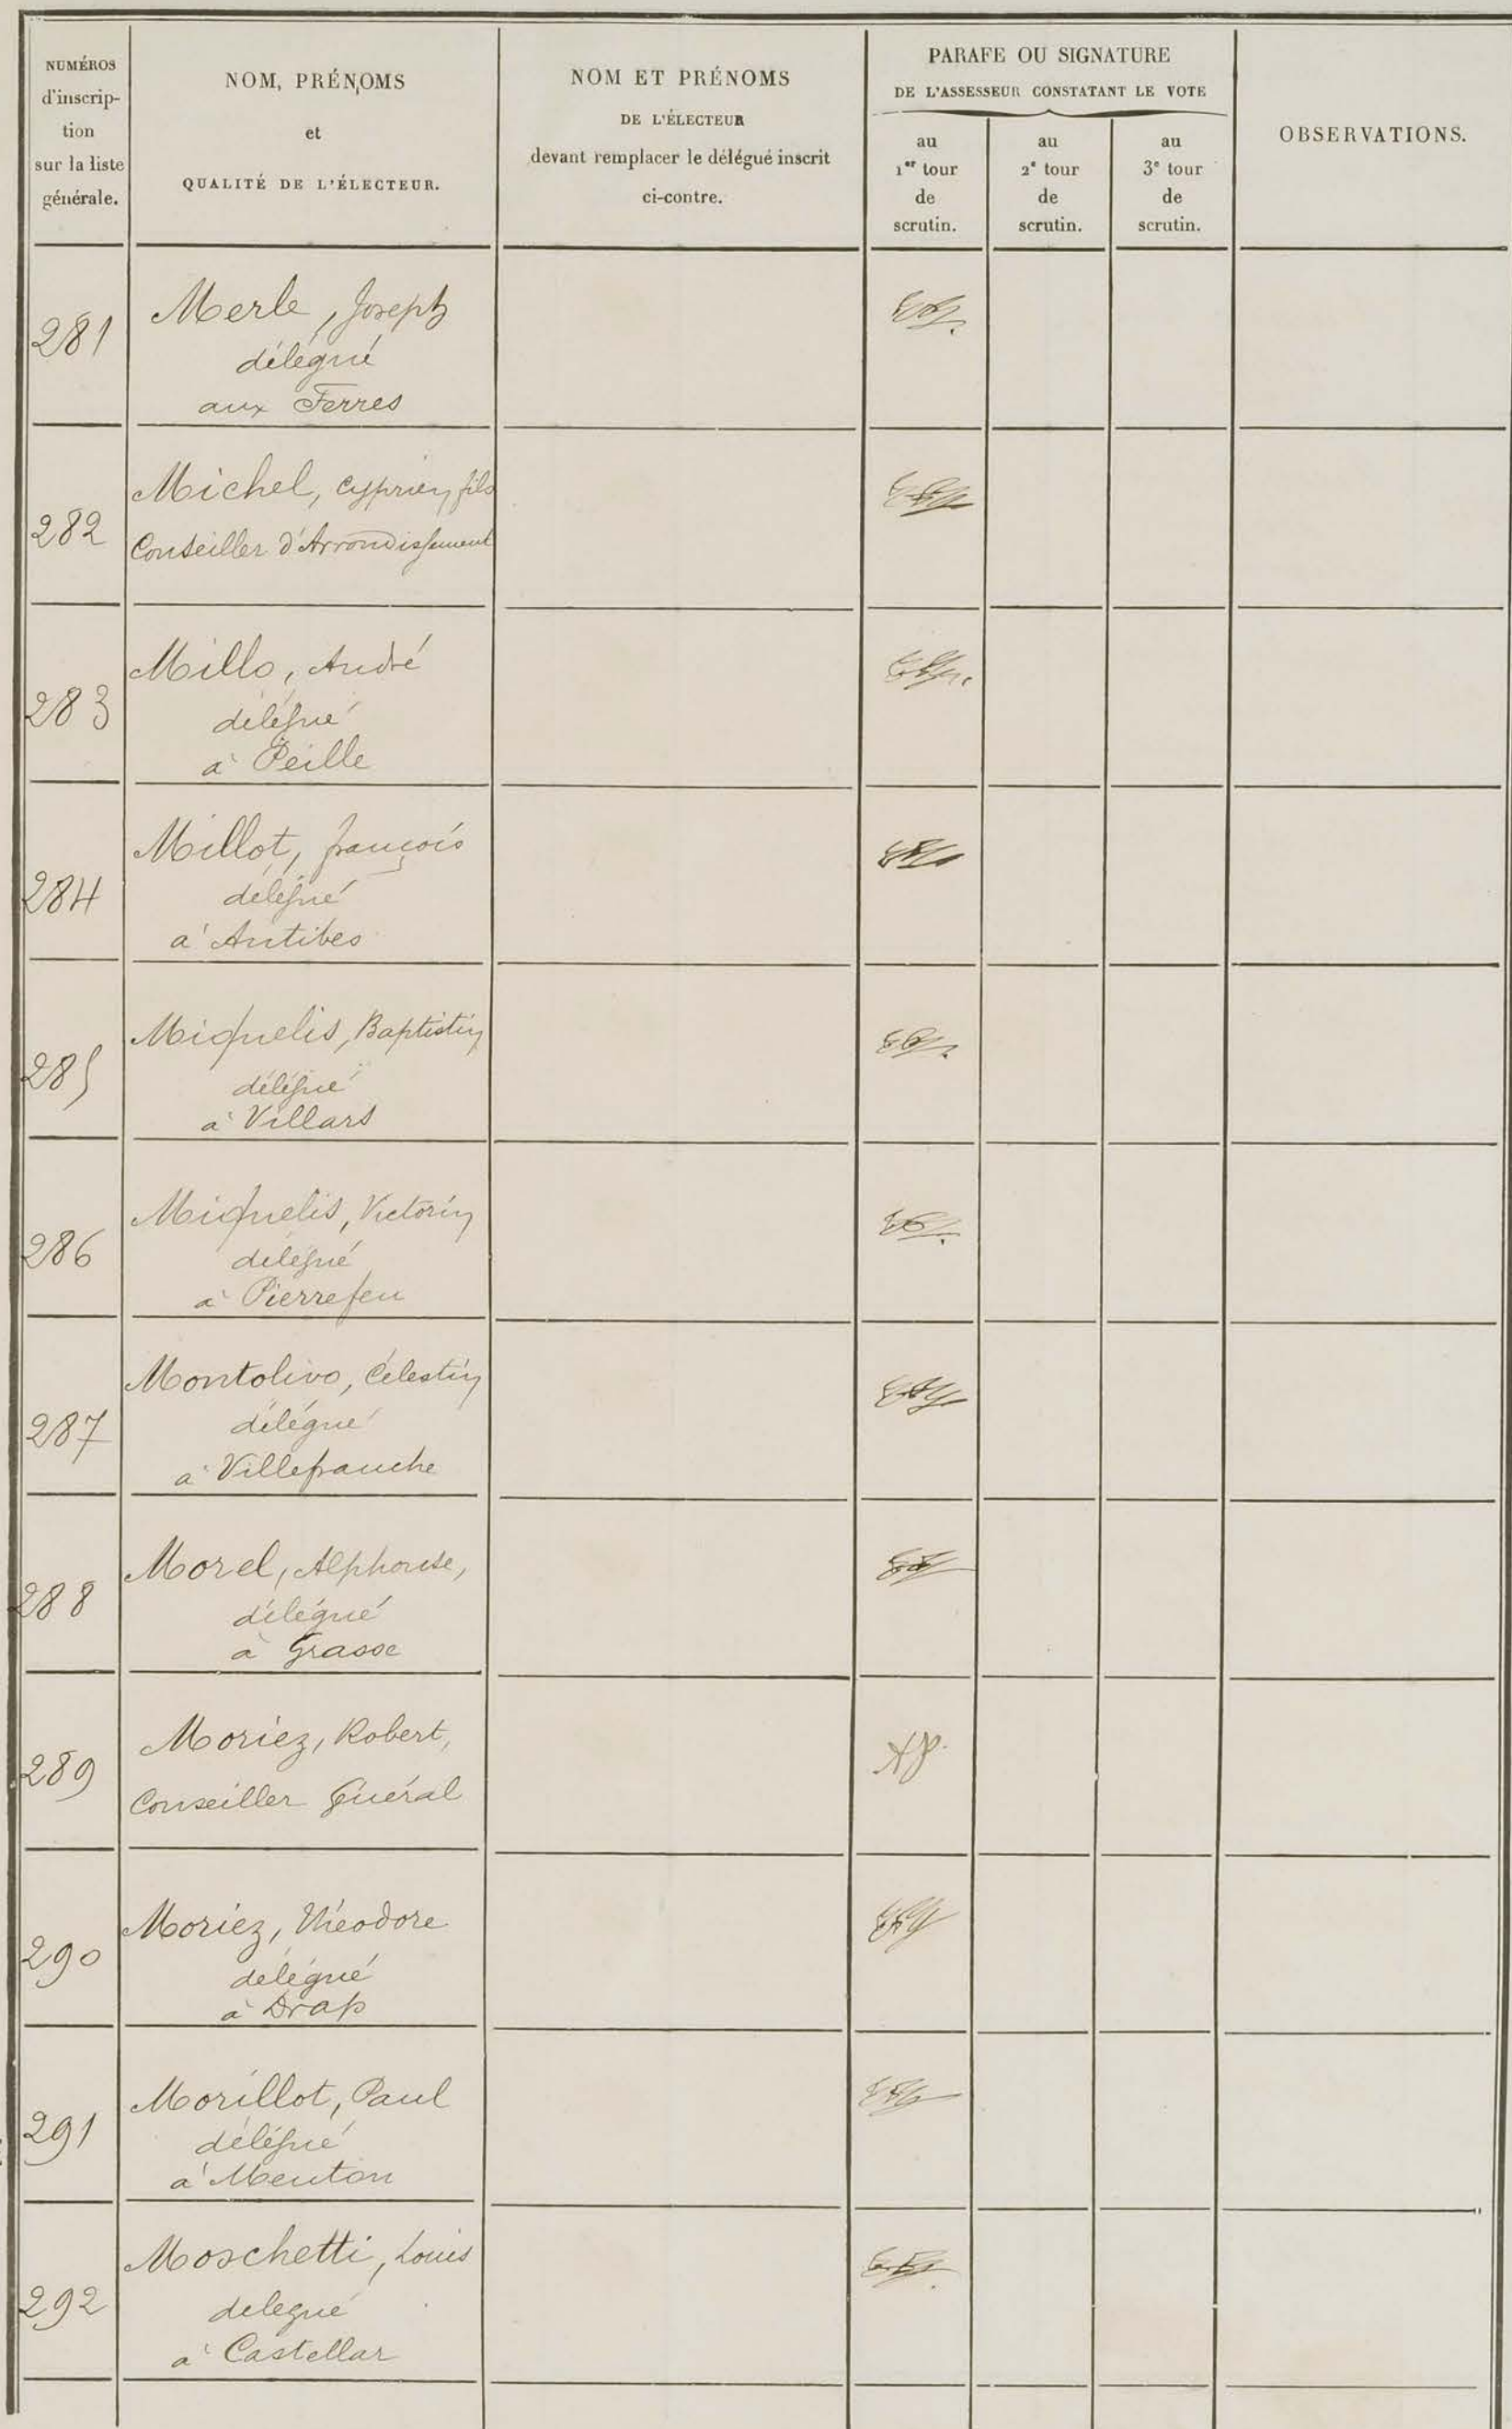 NUMÉROS
d'inscrip-
tion
sur la liste
générale.
NOM, PRÉNOMS
et
QUALITÉ DE L'ÉLECTEUR.
NOM ET PRÉNOMS
DE L'ÉLECTEUR
devant remplacer le délégué inscrit
ci-contre.
PARAFE OU SIGNATURE
DE L'ASSESSEUR CONSTATANT LE VOTE
au
1er tour
de
scrutin.
au
2e tour
de
scrutin.
au
3e tour
de
scrutin.
OBSERVATIONS.
281
Merle, Joseph
délégué
aux Ferres
282
Michel, Cyprien fils
Conseiller d'Arrondissement
283
Millo, André
délégué
à Peille
284
Millot, françois
délégué
à Antibes
285
Miquelis, Baptistin
délégué
à Villars
286
Miquelis, Victorin
délégué
à Pierrefeu
287
Montolivo, Célestin
délégué
à Villefranche
288
Morel, Alphonse,
délégué
à Grasse
289
Moriez, Robert,
Conseiller Général
290
Moriez, Théodore
délégué
à Drap
291
Morillot, Paul
délégué
à Menton
292
Moschetti, Louis
delegué
à Castellar